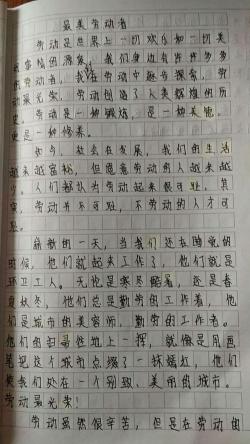 最美劳动者
劳动是世界上一切欢乐和一切美
好事情的源泉。我们身边有许许多多
的劳动者，我在劳动中逐步探索，劳
动最光荣，劳动创造了人类辉煌的历
史。劳动是一种锻炼，是一种美德，
更是一种修养。
如今，社会在发展，我们的生活
越来越富裕，但愿意劳动的人越来越
少。人们都认为劳动起来很可耻，其
实，劳动并不可耻，不劳动的人才可
耻。
晨歌的一天，当我们还在睡觉的
时候，他们就起来工作了，他们就是
环卫工人。无论是寒冬酷暑，还是春
夏秋冬，他们总是勤劳的工作着，他
们是城市的美容师，勤劳的工作者。
他们的扫帚往地上一挥，就像是用画
笔把这个城市点缀了一抹嫣红，他们
使我们处在一个别致、美丽的城市。
劳动最光荣！
劳动虽然很辛苦，但是在劳动的